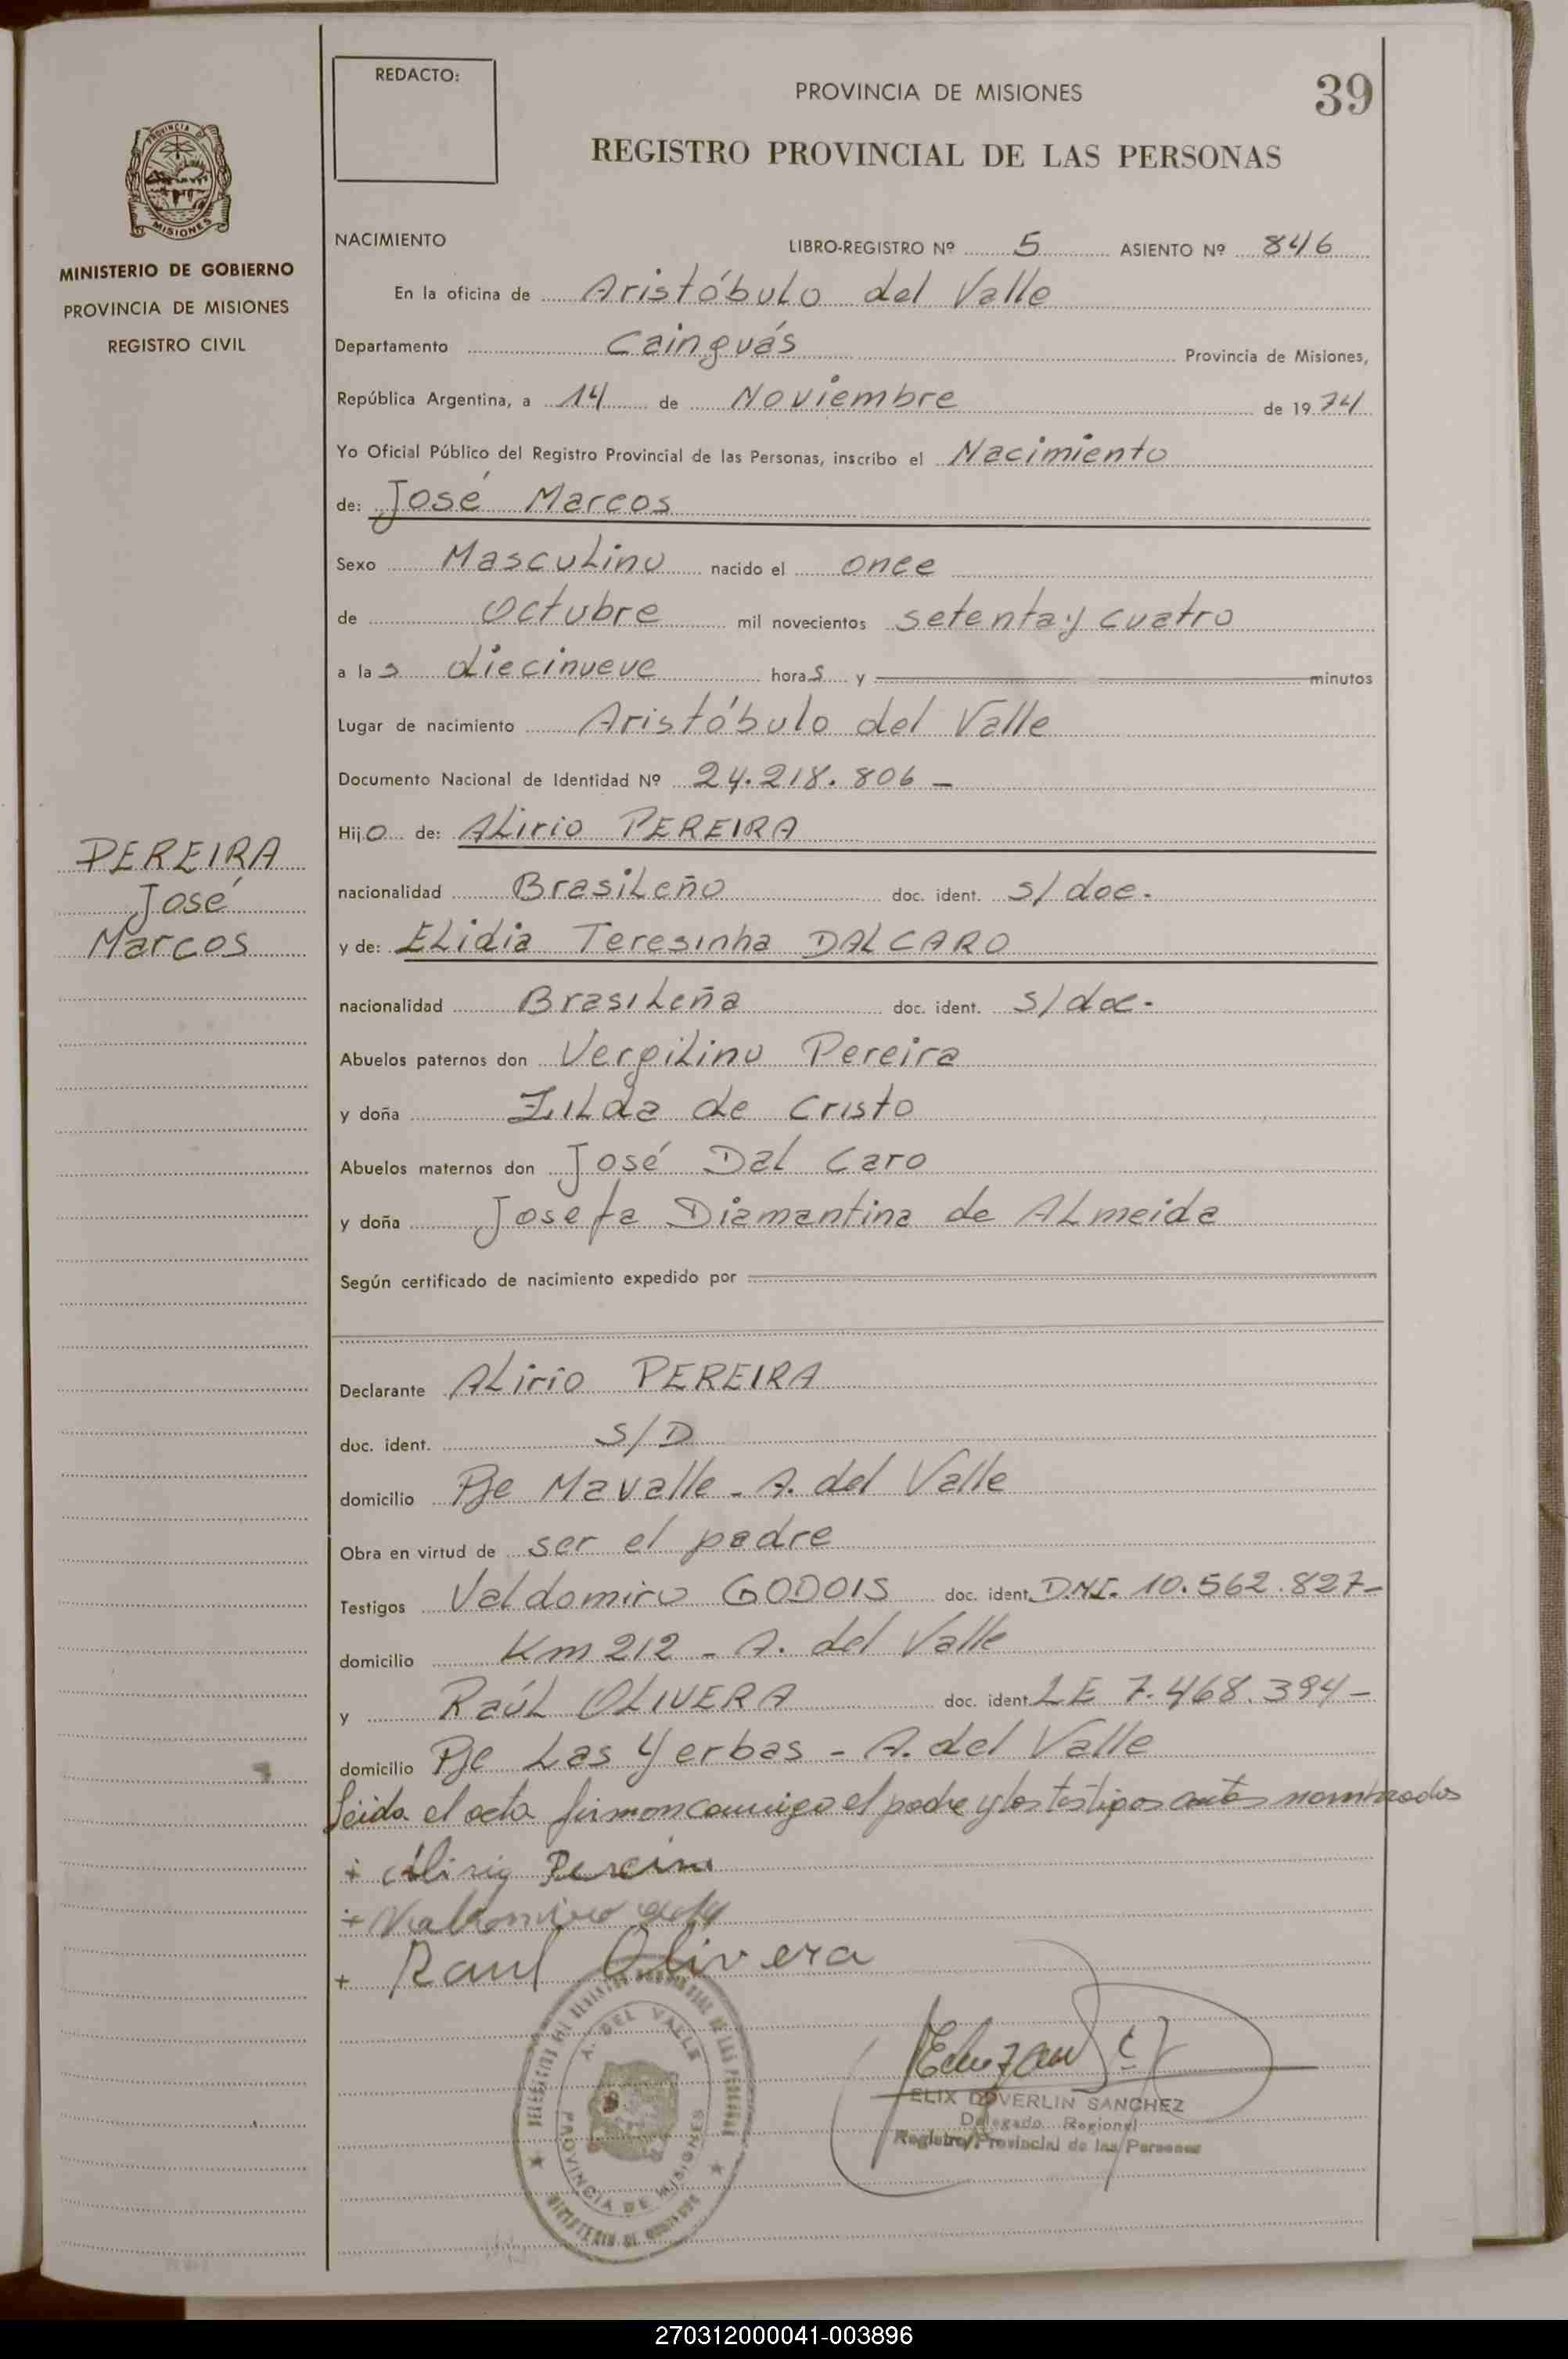 REDACTO:
PROVINCIA DE MISIONES
39
REGISTRO PROVINCIAL DE LAS PERSONAS
PROVINCIA DE
MISIONES
MINISTERIO DE GOBIERNO
PROVINCIA DE MISIONES
REGISTRO CIVIL
NACIMIENTO LIBRO-REGISTRO Nº 5 ASIENTO Nº 846
En la oficina de Aristóbulo del Valle
Departamento Cainguás Provincia de Misiones,
República Argentina, a 14 de Noviembre de 19 74
Yo Oficial Público del Registro Provincial de las Personas, inscribo el Nacimiento
de: José Marcos
Sexo Masculino nacido el once
de Octubre mil novecientos setenta y cuatro
a las diecinueve horas y minutos
Lugar de nacimiento Aristóbulo del Valle
Documento Nacional de Identidad Nº 24.218.806 -
Hijo de: ALirio PEREIRA
PEREIRA
José
Marcos
nacionalidad BrasiLeño doc. ident. s/doc.
y de: ELidia Teresinha DALCARO
nacionalidad BrasiLeña doc. ident. s/doc.
Abuelos paternos don VergiLino Pereira
y doña ZiLda de Cristo
Abuelos maternos don José Dal Caro
y doña Josefa Diamantina de ALmeida
Según certificado de nacimiento expedido por
Declarante ALirio PEREIRA
doc. ident. S/D
domicilio Pje Mavalle - A. del Valle
Obra en virtud de ser el padre
Testigos Valdomiro GODOIS doc. ident. D.N.I. 10.562.827-
domicilio Km 212 - A. del Valle
y RaúL OLIVERA doc. ident. LE 7.468.394-
domicilio Pje Las Yerbas - A. del Valle
Leida el acta firman conmigo el padre y los testigos antes nombrados
+ Alirio Pereira
+ Valdomiro
+ Raul Olivera
A. DEL VALLE
PROVINCIA DE MISIONES
ELIX DOVERLIN SANCHEZ
Delegado Regional
Registro Provincial de las Personas
270312000041-003896